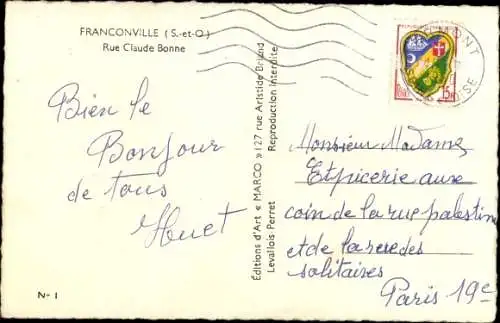 FRANCONVILLE (S.-et-O.)
Rue Claude Bonne
Bien le
Bonjour
de tous
Huet
N° 1
Éditions d'Art « MARCO » 127 rue Aristide Briand
Levallois Perret
Reproduction Interdite
MONT
OISE
15F
Monsieur Madame
Etpicerie aux
coin de la rue palestin
et de la rue des
solitaires
Paris 19e